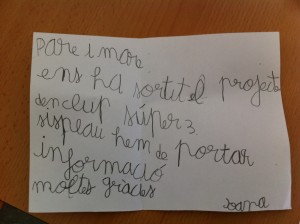 pare i mare
ens ha sortit el projecte
den clup súper 3.
sispeau hem de portar
informació
moltes gràcies
Joana